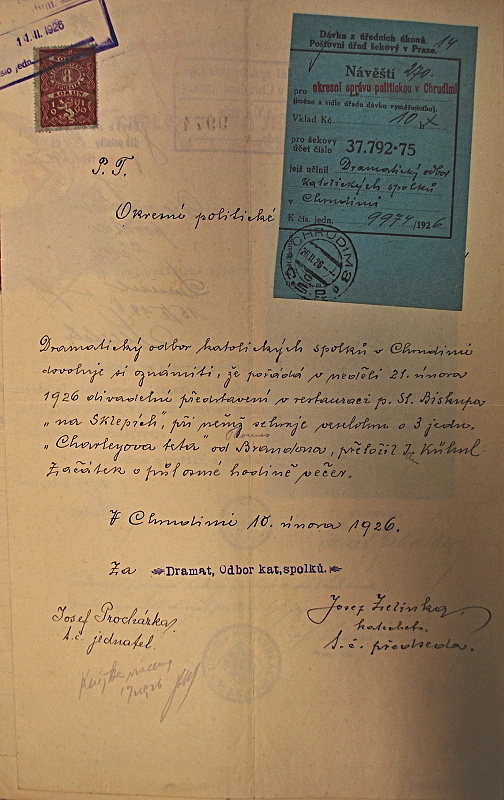 11. II. 1926
8
Dávka z úředních úkonů.
Poštovní úřad šekový v Praze.
14
Návěští 270.
pro okresní správu politickou v Chrudimi
(jméno a sídlo úřadu dávku vyměřujícího).
Vklad Kč 10
pro šekový
účet číslo 37.792·75
jejž učinil Dramatický odbor
katolických spolků
v Chrudimi
K čís. jedn. 9974/1926.
CHRUDIM 3
P. T.
Okresní politické
Dramatický odbor katolických spolků v Chrudimi
dovoluje si oznámiti, že pořádá v neděli 21. února
1926 divadelní představení v restauraci p. St. Biskupa
"na Sklepích", při němž sehraje veselohru o 3 jedn.
"Charleyova teta" od Brandona, přeložil Kühnl.
Začátek o půlosmé hodině večer.
V Chrudimi 10. února 1926.
Za Dramat, Odbor kat,spolků.
Josef Procházka
t.č. jednatel.
Josef Zelinka
katecheta
t.č. předseda.